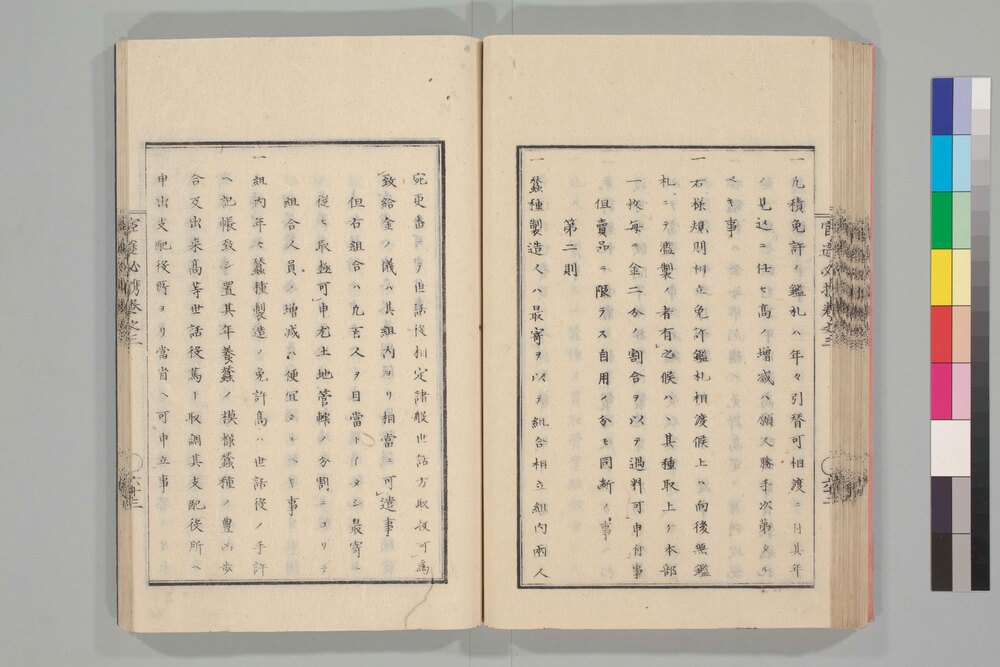 一 允積免許ノ鑑札ハ年々引替可相渡ニ付其年
ノ見込ニ任セ高ノ増減ハ願人勝手次第タル
ヘキ事
一 右様規則相立免許鑑札相渡候上ハ向後無鑑
札ニテ濫製ノ者有之候ハヽ其種取上ケ本部
一枚毎ニ金二分ノ割合ヲ以テ過料可申付事
但賣品ニ限ラス自用ノ分モ同断ノ事
第二則
一 蠶種製造人ハ最寄ヲ以テ組合相立組内兩人
宛更番ヲ世話役相定諸般世話方取扱可為
致給金ノ儀ハ其組内ヨリ相當ニ可遣事
但右組合ハ九百人ヲ目當トイタシ最寄ニ
従ヒ取極可申尤土地管轄ノ分割ニヨリテ
組合人員ノ増減ハ便宜タルヘキ事
一 組内年々蠶種製造ノ免許高ハ世話役ノ手許
ヘ記帳致シ置其年養蠶ノ模様蠶種ノ豊凶歩
合及出来高等世話役篤ト取調其支配役所ヘ
申出支配役所ヨリ當省ヘ可申立事